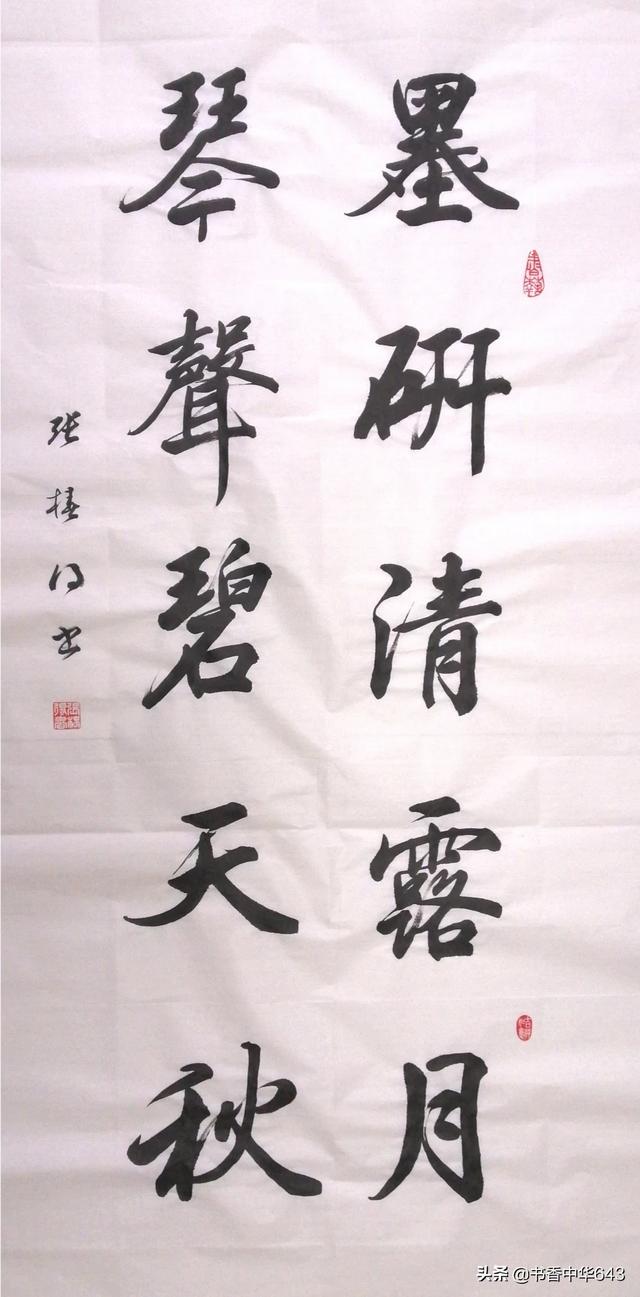 墨研清露月
琴聲碧天秋
张椿得书
头条 @书香中华643